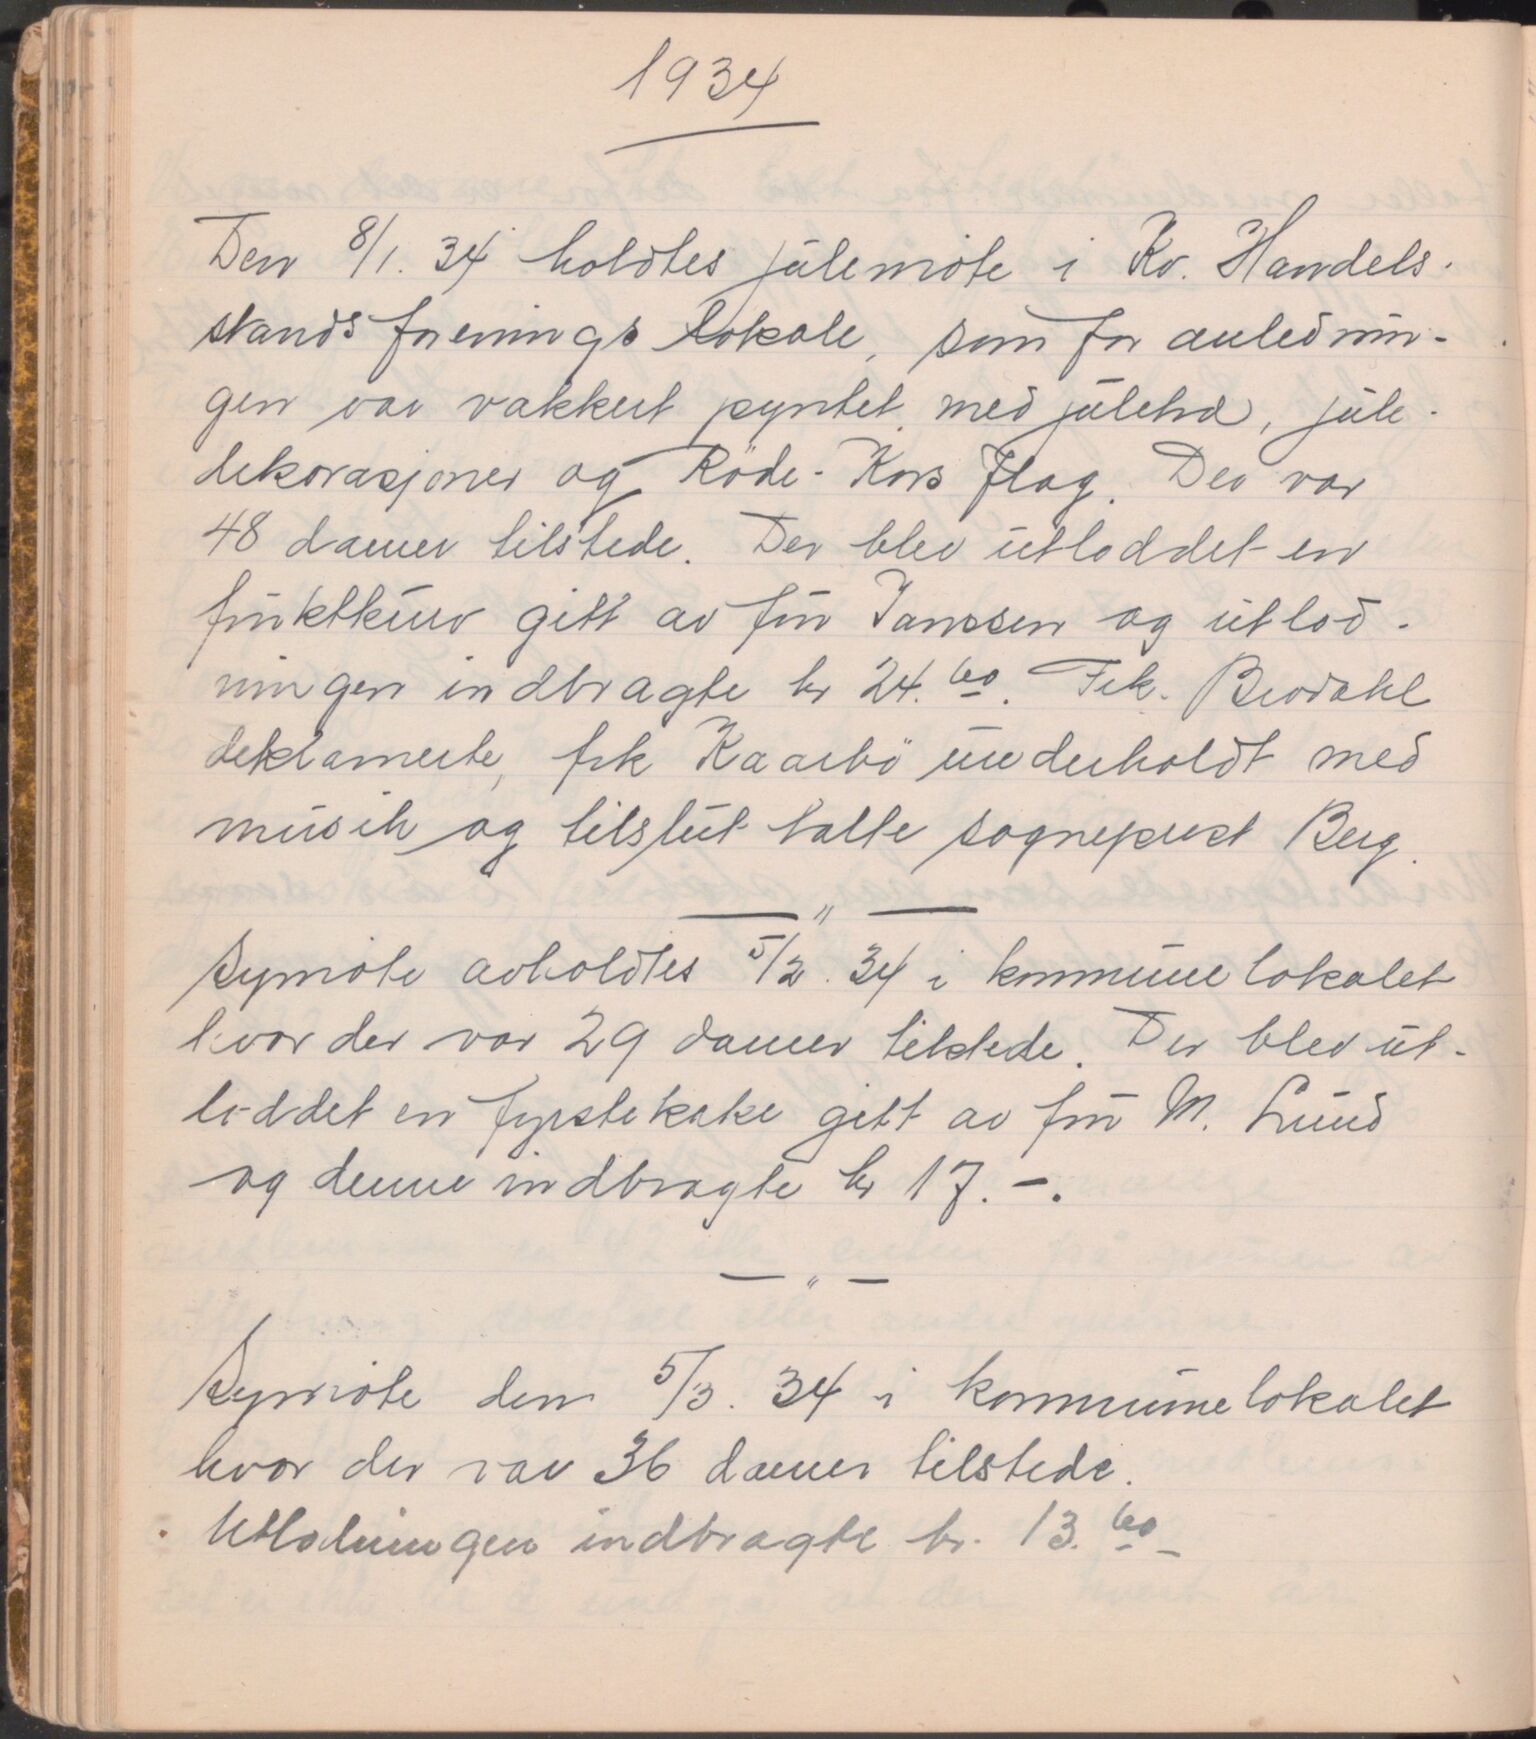 1934
Den 8/1. 34 holdtes julemöte i Kv. Handels-
stands forenings lokale, som for anlednin-
gen var vakkert pyntet med juletræ, jule-
dekorasjoner og Röde-Kors flag. Der var
48 damer tilstede. Der blev utloddet en
fruktkurv gitt av fru Janssen og utlod-
ningen indbragte kr 24.60. Frk. Brodahl
deklamerte, frk Kaarbö underholdt med
musik og tilslut talte sogneprest Berg.
— " —
Symöte avholdtes 5/2. 34 i kommunelokalet
hvor der var 29 damer tilstede. Der blev ut-
loddet en fyrstekake gitt av fru M. Lund
og denne indbragte kr 17.-.
— " —
Symöte den 5/3. 34 i kommunelokalet
hvor der var 36 damer tilstede.
Utlodningen indbragte kr. 13.60